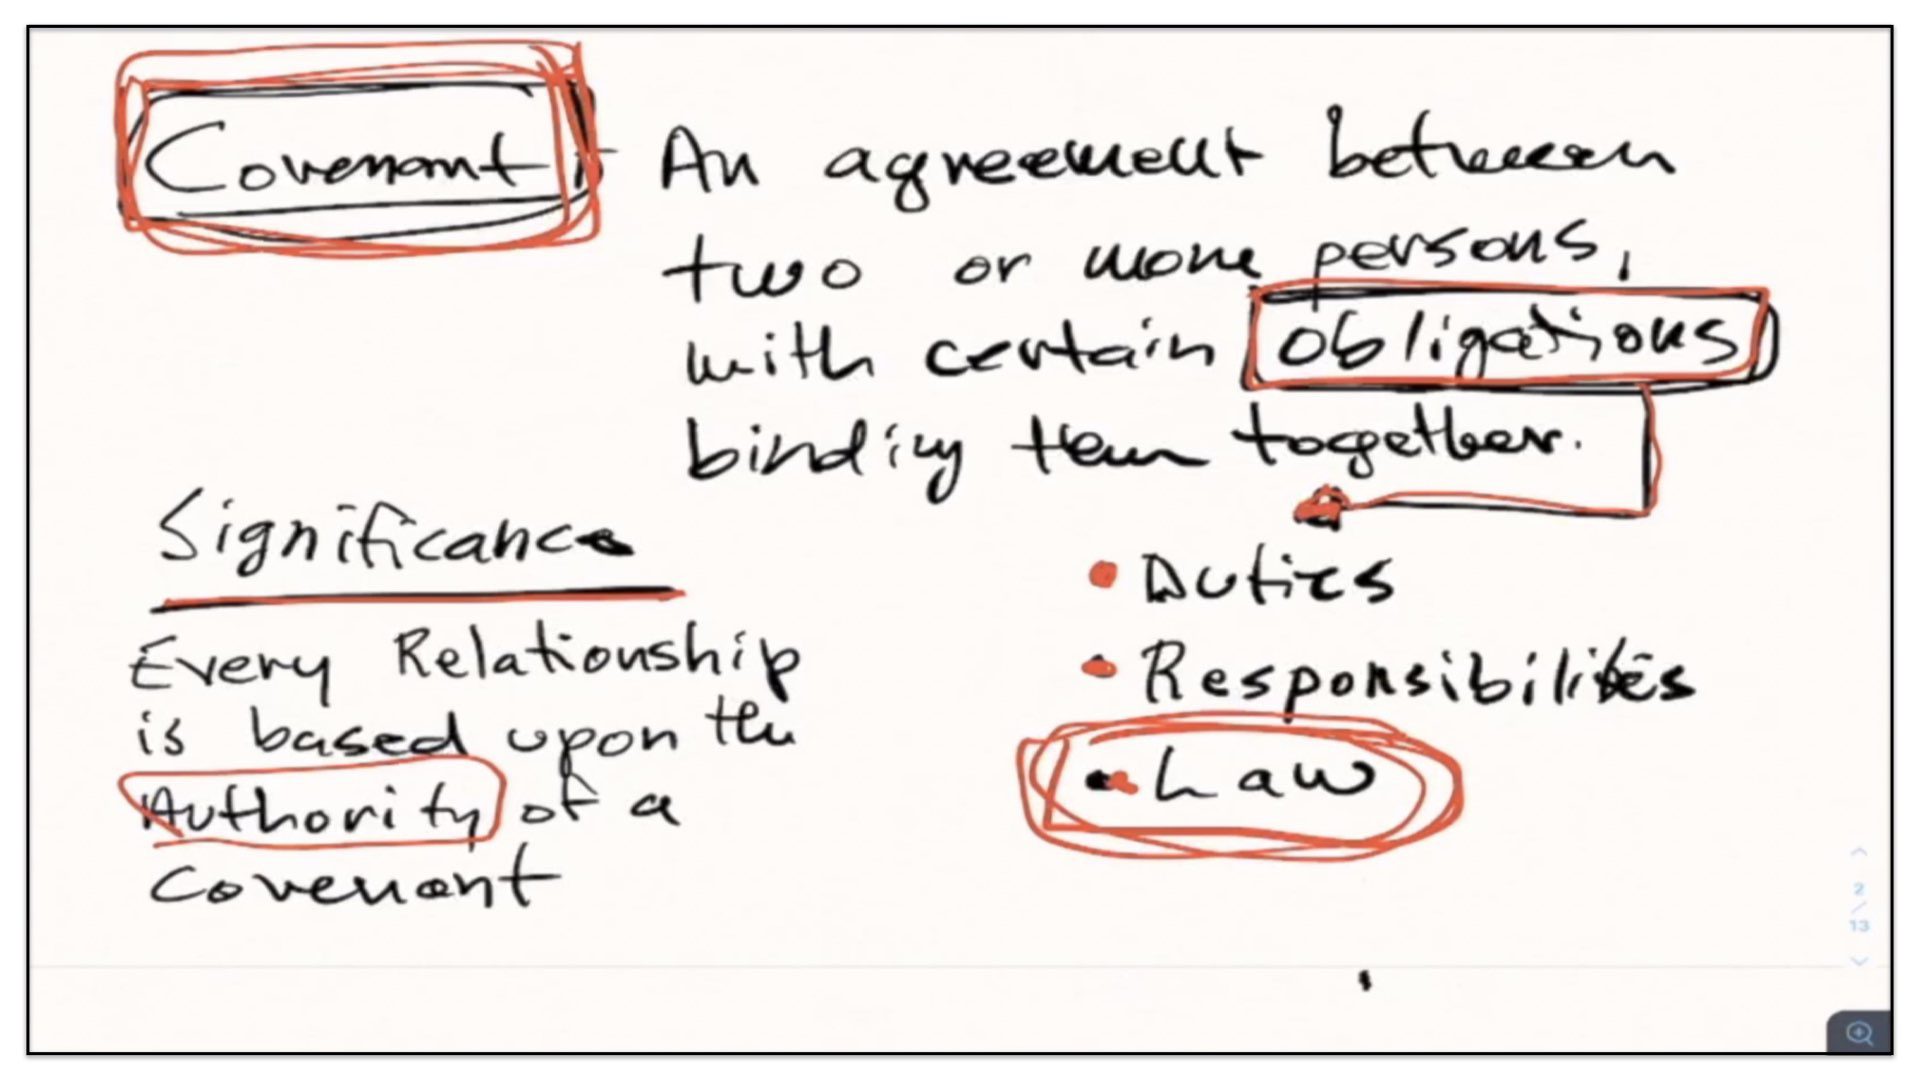 Covenant: An agreement between
two or more persons,
with certain obligations
binding them together.
Significance
Every Relationship
is based upon the
Authority of a
Covenant
• Duties
• Responsibilities
• Law
2
/
13